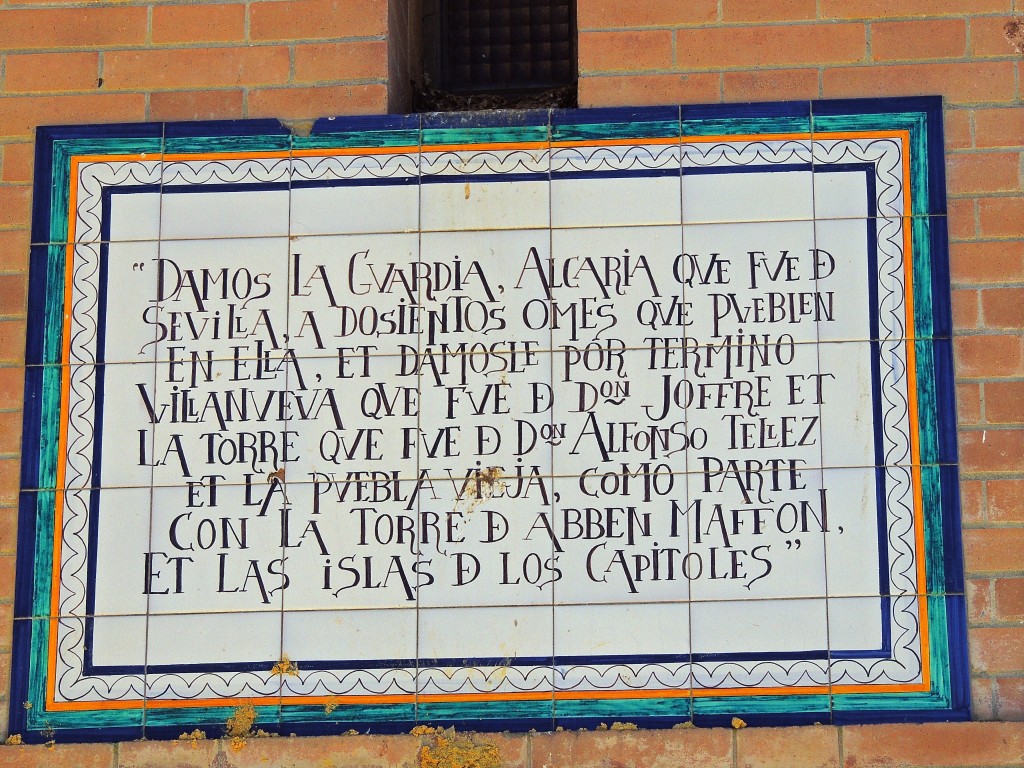 “DAMOS LA GVARDIA, ALCARIA QVE FVE Đ
SEVILLA, A DOSIENTOS OMES QVE PVEBLEN
EN ELLA, ET DAMOSLE PÓR TERMINO
VILLANVEVA QVE FVE Đ DON JOFFRE ET
LA TORRE QVE FVE Đ DON ALFONSO TELLEZ
ET LA PVEBLA VIEJA, COMO PARTE
CON LA TORRE Đ ABBEN MAFFON,
ET LAS ISLAS Đ LOS CAPITOLES”